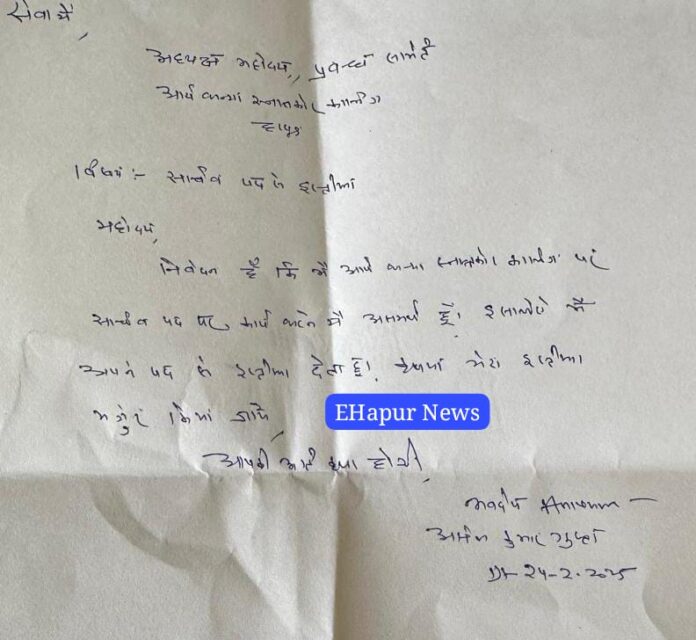 सेवा में,
अध्यक्ष महोदय, प्रबन्ध समिति
आर्य कन्या स्नातकोत्तर कालेज
हापुड़
विषय :- सचिव पद से इस्तीफा
महोदय,
निवेदन है कि मैं आर्य कन्या स्नातकोत्तर कालेज पर
सचिव पद पर कार्य करने में असमर्थ हूँ। इसलिये मैं
अपने पद से इस्तीफा देता हूँ। कृपया मेरा इस्तीफा
मंजूर किया जाये,
EHapur News
आपकी अति कृपा होगी,
भवदीय
कुमार गुप्ता
Dt 24-2-2025